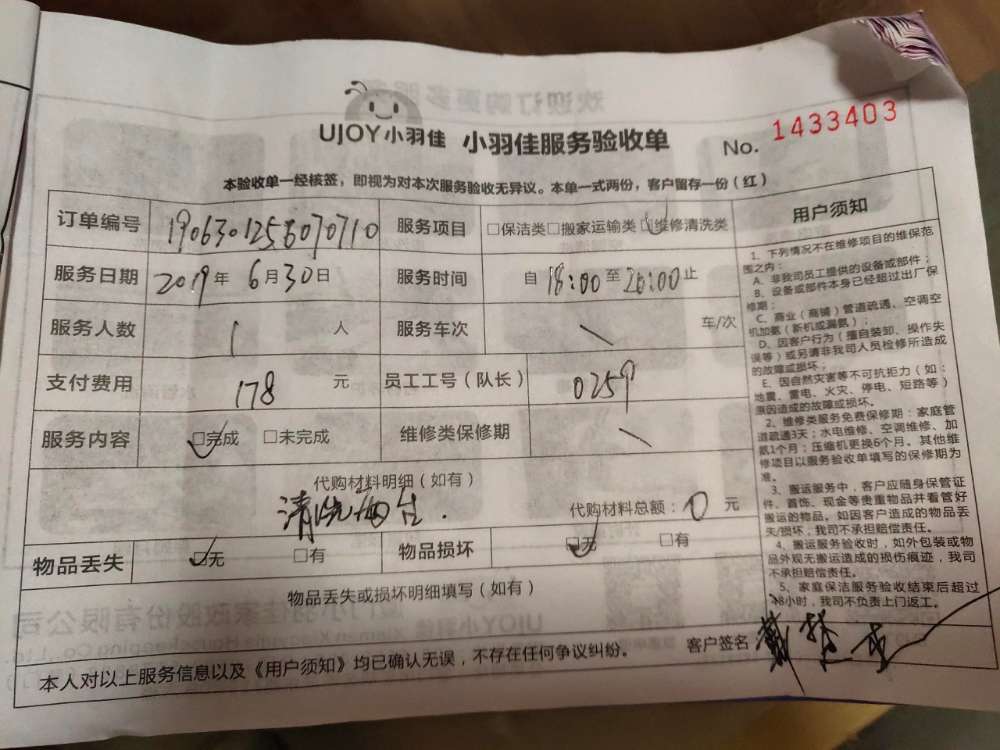 UJOY小羽佳 小羽佳服务验收单 No. 1433403
本验收单一经核签，即视为对本次服务验收无异议。本单一式两份，客户留存一份（红）
订单编号 190630125807010 服务项目 □保洁类□搬家运输类□维修清洗类
服务日期 2019年6月30日 服务时间 自18:00至20:00止
服务人数 1 人 服务车次 车/次
支付费用 178 元 员工工号（队长） 0259
服务内容 □完成 □未完成 维修类保修期
代购材料明细（如有）
清洗 代购材料总额：0元
物品丢失 □无 □有 物品损坏 □无 □有
物品丢失或损坏明细填写（如有）
本人对以上服务信息以及《用户须知》均已确认无误，不存在任何争议纠纷。
客户签名 戴
用户须知
1、下列情况不在维修项目的维保范
围之内：
A、非我司员工提供的设备或部件；
B、设备或部件本身已经超过出厂保
修期；
C、商业（商铺）管道疏通、空调空
机加氨（新机或漏氨）；
D、因客户行为（擅自装卸、操作失
误等）或另请非我司人员检修所造成
的故障或损坏；
E、因自然灾害等不可抗拒力（如：
地震、雷电、火灾、停电、短路等）
原因造成的故障或损坏。
2、维修类服务免费保修期：家庭管
道疏通3天；水电维修、空调维修、加
氨1个月；压缩机更换6个月。其他维
修项目以服务验收单填写的保修期为
准。
3、搬运服务中，客户应随身保管证
件、首饰、现金等贵重物品并看管好
搬运的物品。如因客户造成的物品丢
失/损坏，我司不承担赔偿责任。
4、搬运服务验收时，如外包装或物
品外观无搬运造成的损伤痕迹，我司
不承担赔偿责任。
5、家庭保洁服务验收结束后超过
48小时，我司不负责上门返工。